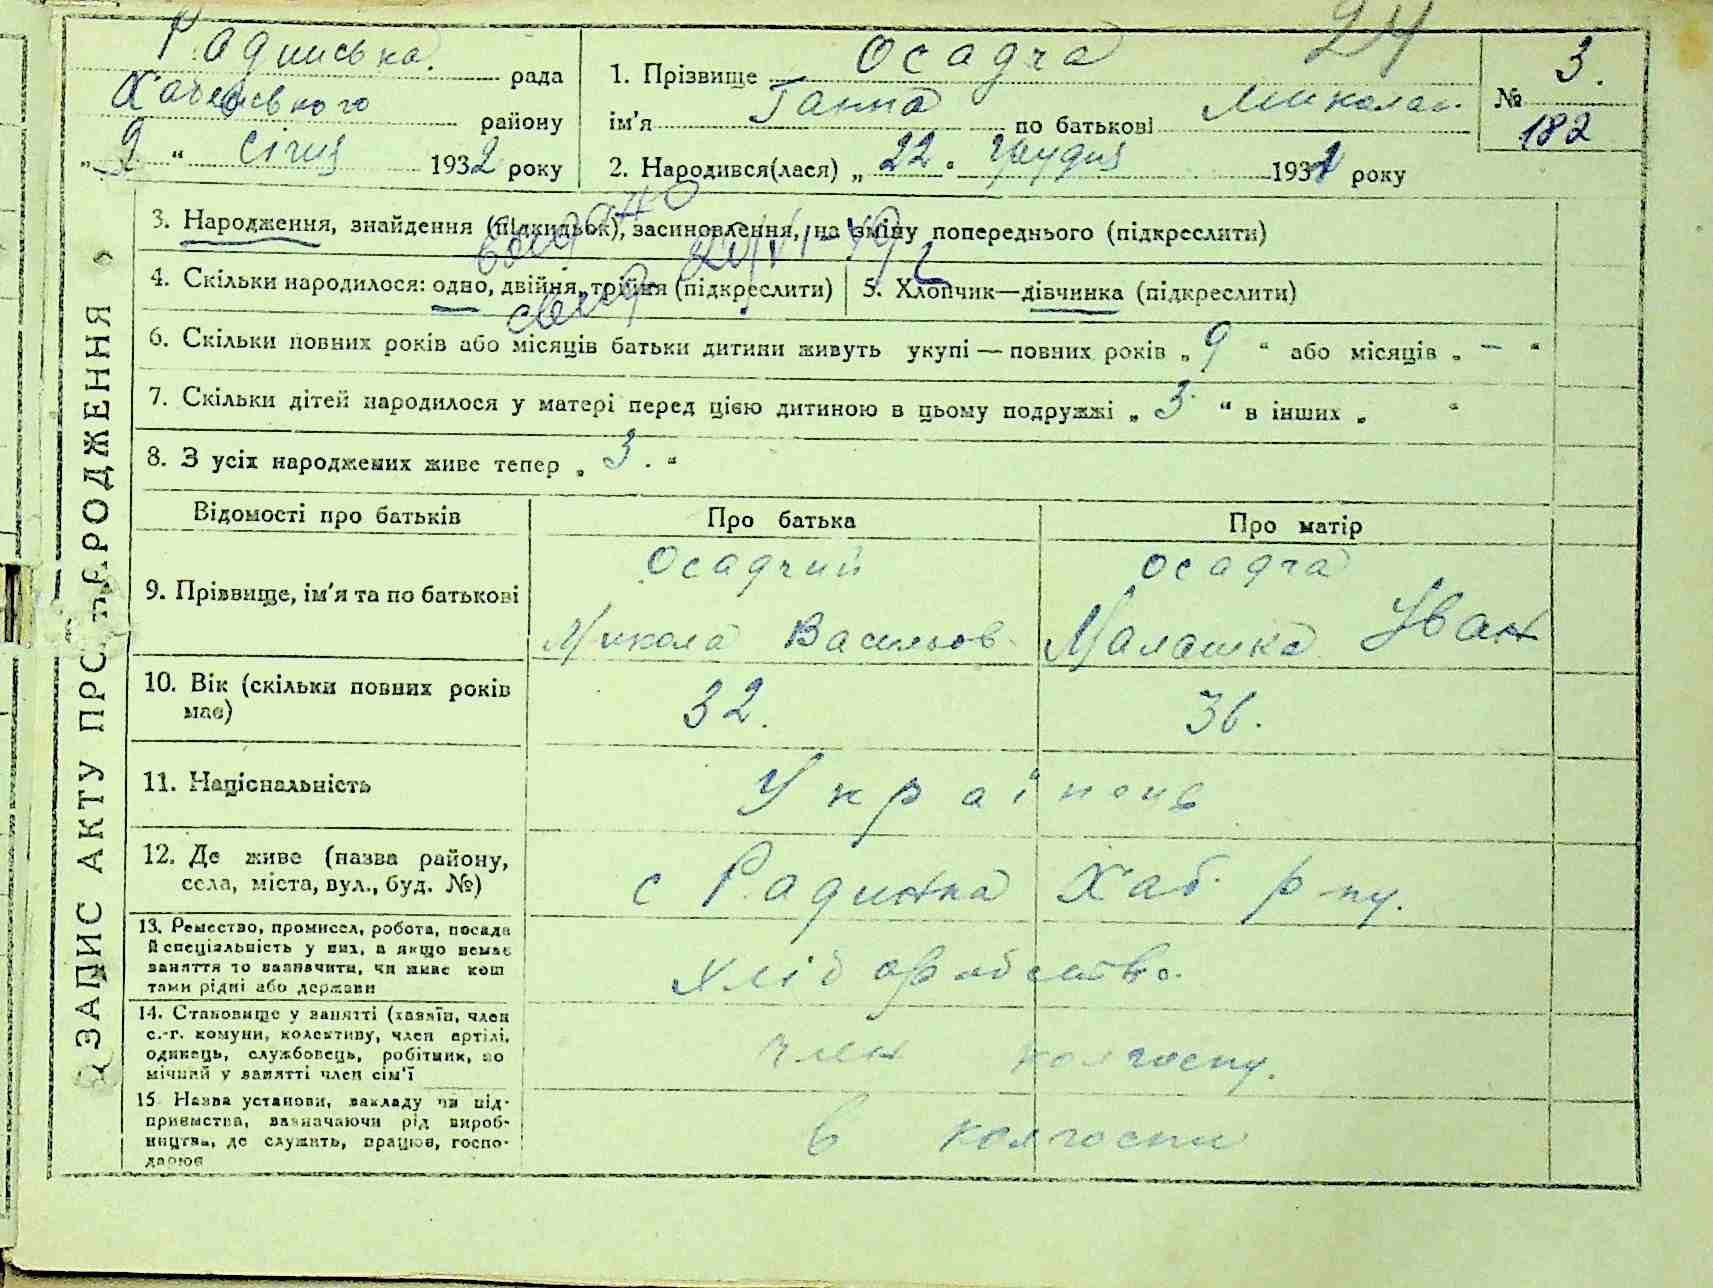 24
Радинська рада
Хабенського району
„2“ січня 1932 року
1. Прізвище Осадча
ім'я Ганна по батькові Миколаї.
2. Народився(лася) „22“ Грудня 1931 року
3.
№ 182
ЗАПИС АКТУ ПРО НАРОДЖЕННЯ
3. Народження, знайдення (підкидьок), засиновлення, на зміну попереднього (підкреслити)
4. Скільки народилося: одно, двійня, трійня (підкреслити)
5. Хлопчик—дівчинка (підкреслити)
6. Скільки повних років або місяців батьки дитини живуть укупі — повних років „9“ або місяців „—“
7. Скільки дітей народилося у матері перед цією дитиною в цьому подружжі „3“ в інших „ “
8. З усіх народжених живе тепер „3.“
Відомості про батьків
Про батька
Про матір
9. Прізвище, ім'я та по батькові
Осадчий
Микола Васильов.
Осадча
Малашка Іван
10. Вік (скільки повних років
має)
32.
36.
11. Національність
Українець
12. Де живе (назва району,
села, міста, вул., буд. №)
с Радинка Хаб. р-ну.
13. Ремество, промисел, робота, посада
й спеціальність у них, а якщо немає
заняття то зазначити, чи живе кош
тами рідні або держави
хліборобство.
14. Становище у занятті (хазяїн, член
с.-г. комуни, колективу, член артілі,
одинець, службовець, робітник, по
мічний у занятті член сім'ї
член колгоспу.
15 Назва установи, закладу чи під-
приємства, зазначаючи рід вироб-
ництва, де служить, працює, госпо-
дарює
в колгоспи